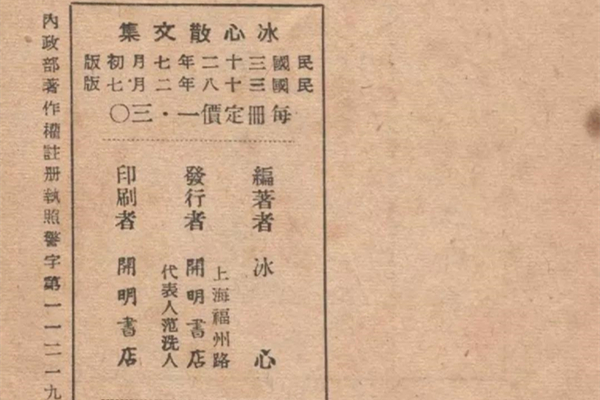 冰心散文集
民國三十二年七月初版
民國三十八年二月七版
每冊定價一・三〇
編著者 冰心
發行者
上海福州路
開明書店
代表人范洗人
印刷者 開明書店
內政部著作權註册執照警字第一一二一九